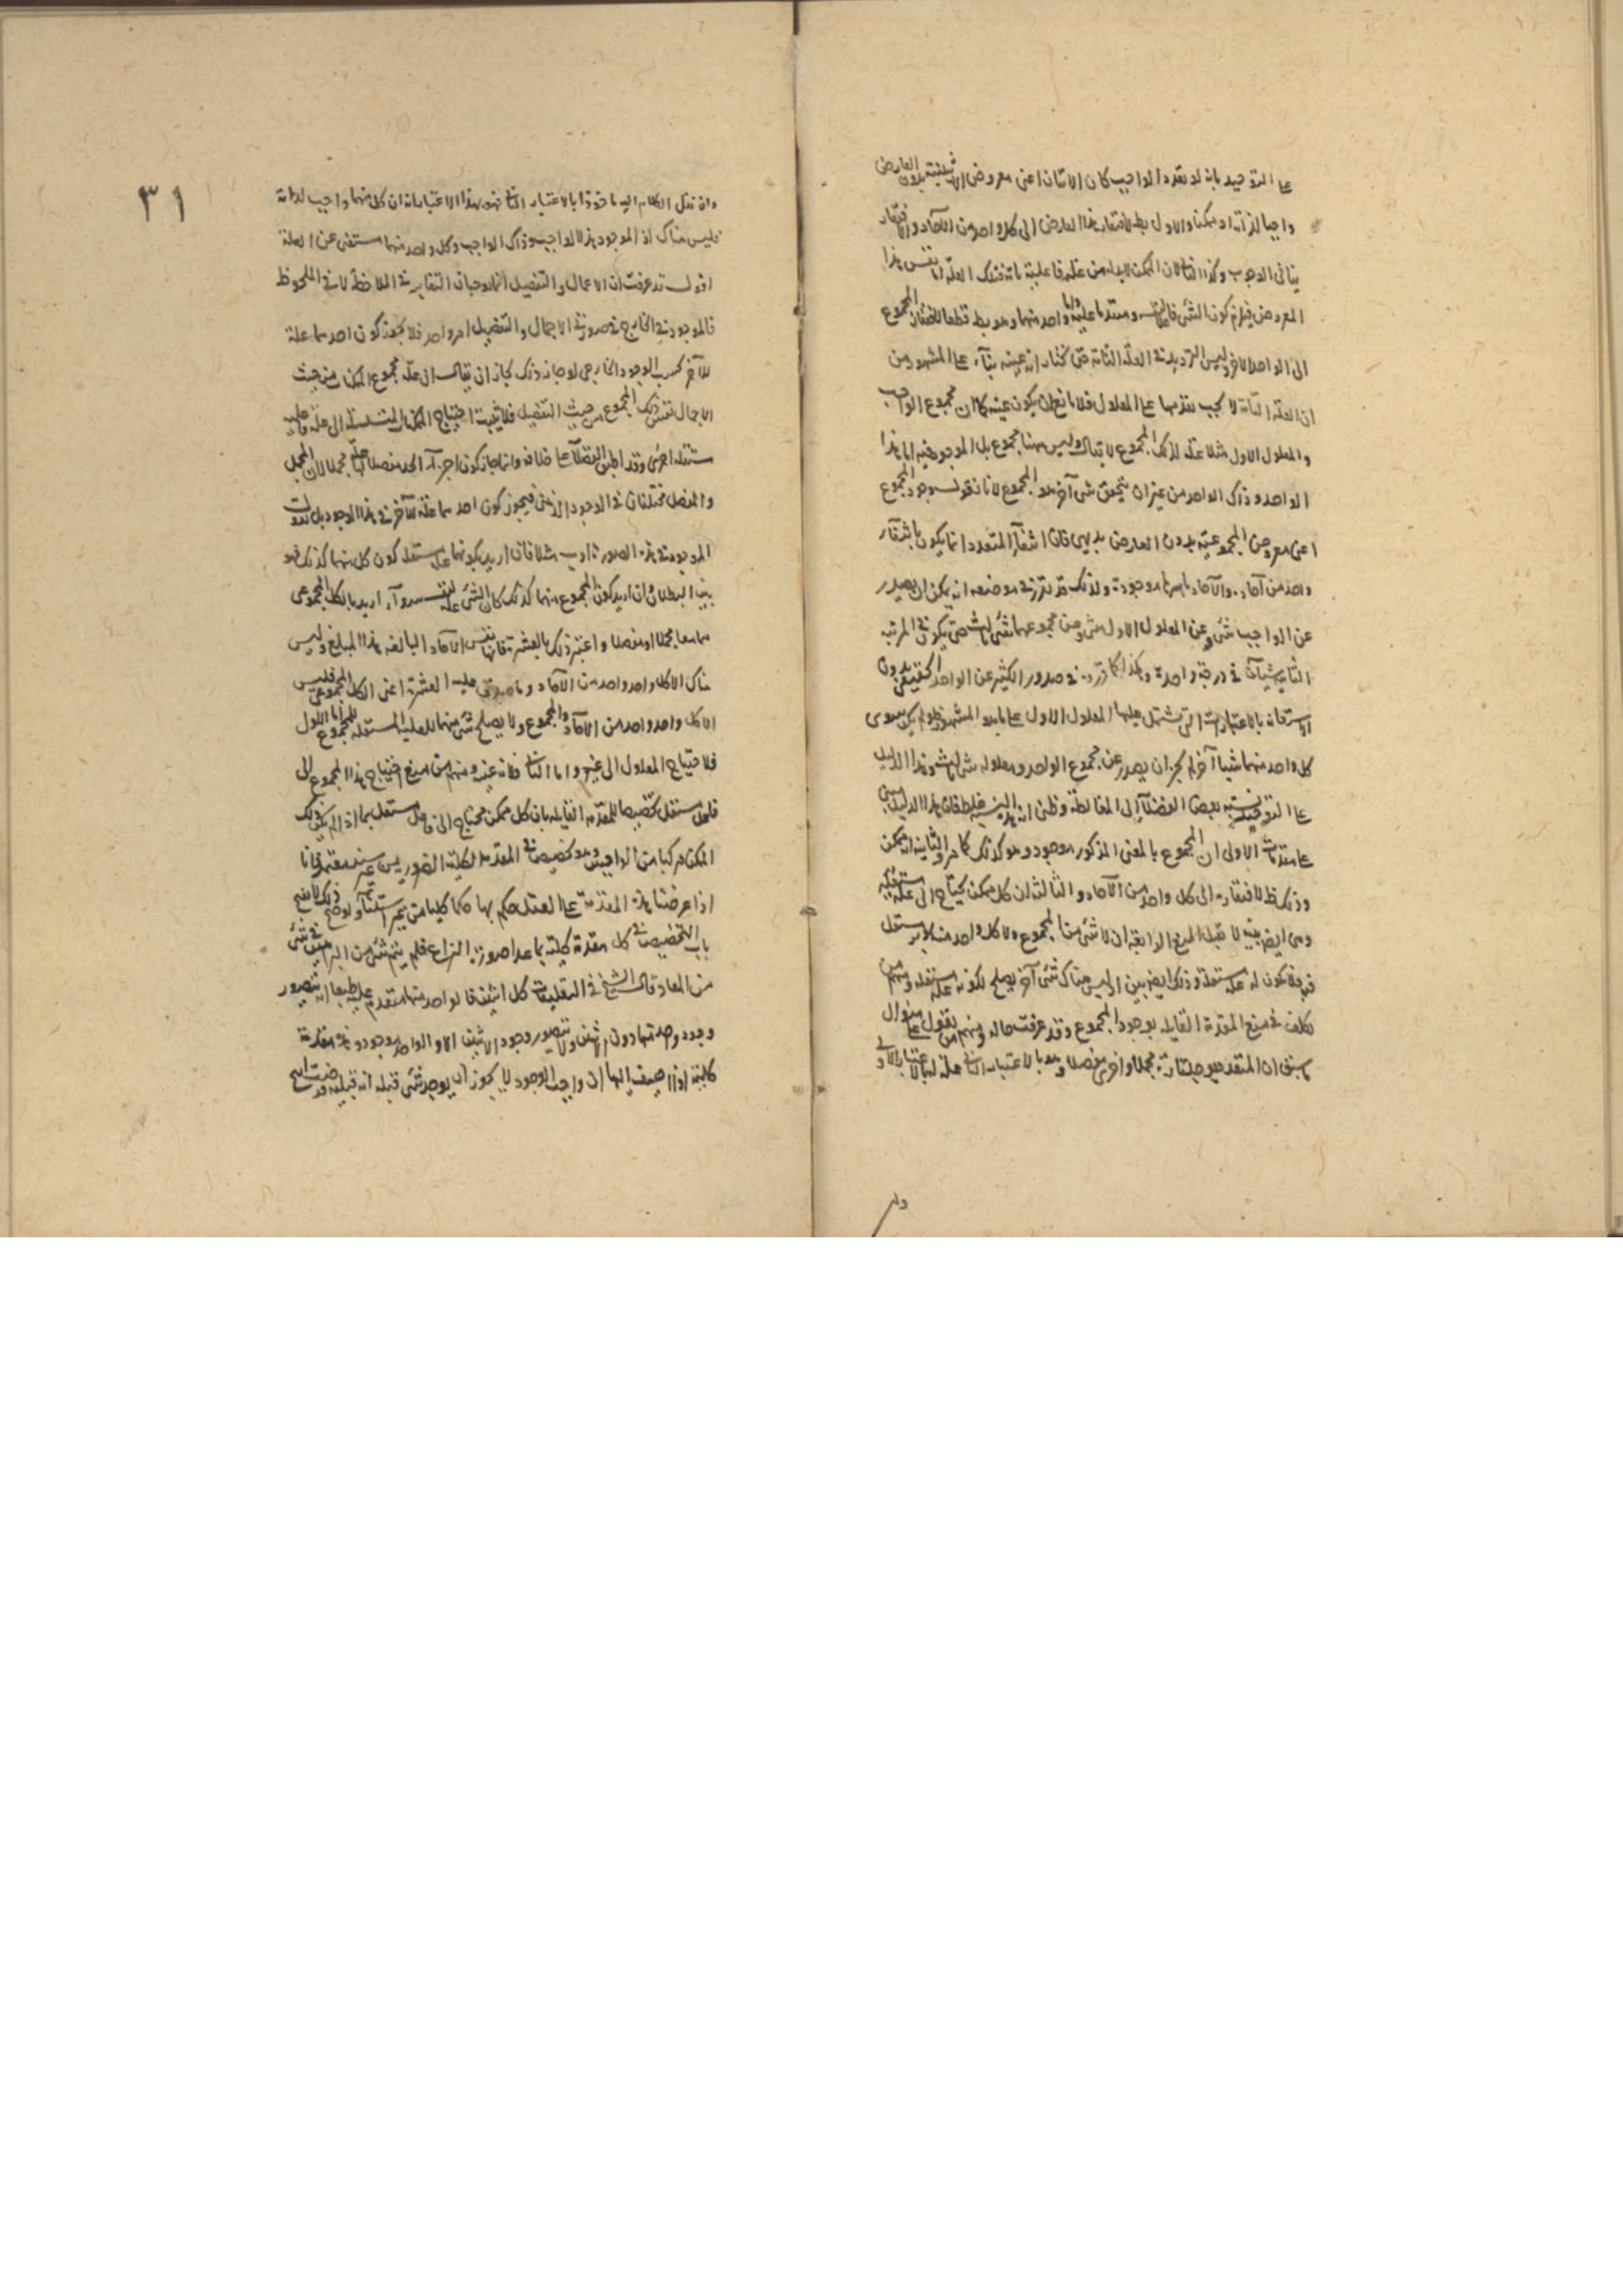 على التوحيد بانه لو تعدد الواجب كان الاثنان اعني معروض الاثنينية بدون العارض
واجبا لذاته او ممكنا والاول بط لافتقار هذا العارض الى كل واحد من الآحاد والافتقار
ينافي الوجوب وكذا الثاني لان الممكن لابد له من علة فاعلية تامة فتلك العلة اما نفس هذا
المعروض فيلزم كون الشئ فاعلا لنفسه ومتقدما عليه واما واحد منهما وهو بط قطعا لافتقار المجموع
الى الواحد الآخر وليس الترديد في العلة التامة حتى نختار انه عينه بناء على المشهور من
ان العلة التامة لا يجب تقدمها على المعلول فلا مانع ان يكون عينه كما ان مجموع الواجب
والمعلول الاول مثلا علة لذلك المجموع لا يقال وليس هنا مجموع بل الموجود فيه اما هذا
الواحد وذاك الواحد من غير ان يتحقق شئ آخر هو المجموع لانا نقول وجود المجموع
اعني معروض المجموعية بدون العارض بديهي فان انتفاء المتعدد انما يكون بانتفاء
واحد من آحاده والآحاد باسرها موجودة ولذلك قد تقرر في موضعه انه يمكن ان يصدر
عن الواجب شئ وعن المعلول الاول شئ وعن مجموعهما شئ ثالث حتى يكون في المرتبة
الثانية شيئان في درجة واحدة وهكذا كما قرروه في صدور الكثير عن الواحد الحقيقي بدون
الاستعانة بالاعتبارات التي يشتمل عليها المعلول الاول على ما هو المشهور ولو لم يكن سوى
كل واحد منهما شيئا آخر لم يجز ان يصدر عن مجموع الواحد ومعلوله شئ ثالث وهذا الدليل
على التوحيد نسبه بعض الفضلاء الى المغالطة وظن انه اليه فلط فان هذا الدليل مبني
على مقدمات الاولى ان المجموع بالمعنى المذكور موجود وهو كذلك كما مر والثانية انه ممكن
وذلك ظ لافتقاره الى كل واحد من الآحاد والثالث ان كل ممكن يحتاج الى علة مستقلة
وهي ايضا بينة لا تقبل المنع الرابعة ان لا شئ من المجموع ولا كل واحد منه بمستقل
فيه فلا يكون له علة مستقلة وذلك ايضا بين اذ ليس هناك شئ آخر يصلح لكونه علة مستقلة ومنهم من
تكلف في منع المقدمة القايلة بوجود المجموع وقد عرفت حاله ومنهم من يقول على منوال
ما سبق ان المتعدد يؤخذ تارة مجملا واخرى مفصلا وهو بالاعتبار الثاني علة له بالاعتبار الاول
وان
٣١
وان نقل الكلام اليه ماخوذا بالاعتبار الثاني فهو بهذا الاعتبار اثنان كل منهما واجب لذاته
فليس هناك اذ الموجود هذا الواجب وذاك الواجب وكل واحد منهما مستغن عن العلة
اقول قد عرفت ان الاجمال والتفصيل انما يوجبان التغاير في الملاحظة لا في الملحوظ
فالموجود في الخارج في صورتي الاجمال والتفصيل امر واحد فلا يجوز كون احدهما علة
للآخر بحسب الوجود الخارجي لو جاز ذلك لجاز ان يقال ان علة مجموع الممكنات من حيث
الاجمال نفس ذلك المجموع من حيث التفصيل فلا يثبت احتياج الممكنات المتسلسلة الى علة فاعلية
مستقلة اخرى وقد اطبق العقلاء على خلافه وانما جاز كون اجزاء الحد مفصلا علة مجملا لان المجمل
والمفصل مختلفان في الوجود الذهني فيجوز كون احدهما علة للآخر في هذا الوجود بل نقول
الموجود في هذه الصورة اوب مثلا فان اريد بكونهما علة مستقلة كون كل منهما كذلك فهو
بين البطلان وان اريد كون المجموع منهما كذلك كان الشئ علة لنفسه سواء اريد بالكل المجموعي
هما معا مجملا او مفصلا واعتبر ذلك بالعشرة فانها نفس الآحاد البالغة هذا المبلغ وليس
هناك الا كل واحد واحد من الآحاد وما صدق عليه العشرة اعني الكل المجموعي فليس
الا كل واحد واحد من الآحاد والمجموع ولا يصلح شئ منهما للعلية المستقلة للمجموع اما الاول
فلاحتياج المعلول الى غيره واما الثاني فلانه عينه ومنهم من منع احتياج هذا المجموع الى
فاعل مستقل تخصيصا للمقدمة القايلة بان كل ممكن محتاج الى فاعل مستقل بما اذا لم يكن ذلك
الممكن مركبا من الواجبين وهو تخصيص في المقدمة الكلية الضرورية من غير سند معتد فانا
اذا عرضنا هذه المقدمة على العقل حكم بها حكما كليا من غير استثناء ولو صح ذلك لانفتح
باب التخصيص في كل مقدمة كلية بما عدا صورة النزاع فلم يتم شئ من البراهين في شئ
من المعاد قال الشيخ في التعليقات كل اثنين فالواحد منهما متقدم عليه طبعا اذ يتصور
وجود وحدتها دون اثنين ولا يتصور وجود الاثنين الا والواحد موجود وهذه مقدمة
كلية اذا اضيف اليها ان واجب الوجود لا يجوز ان يوجد شئ قبله